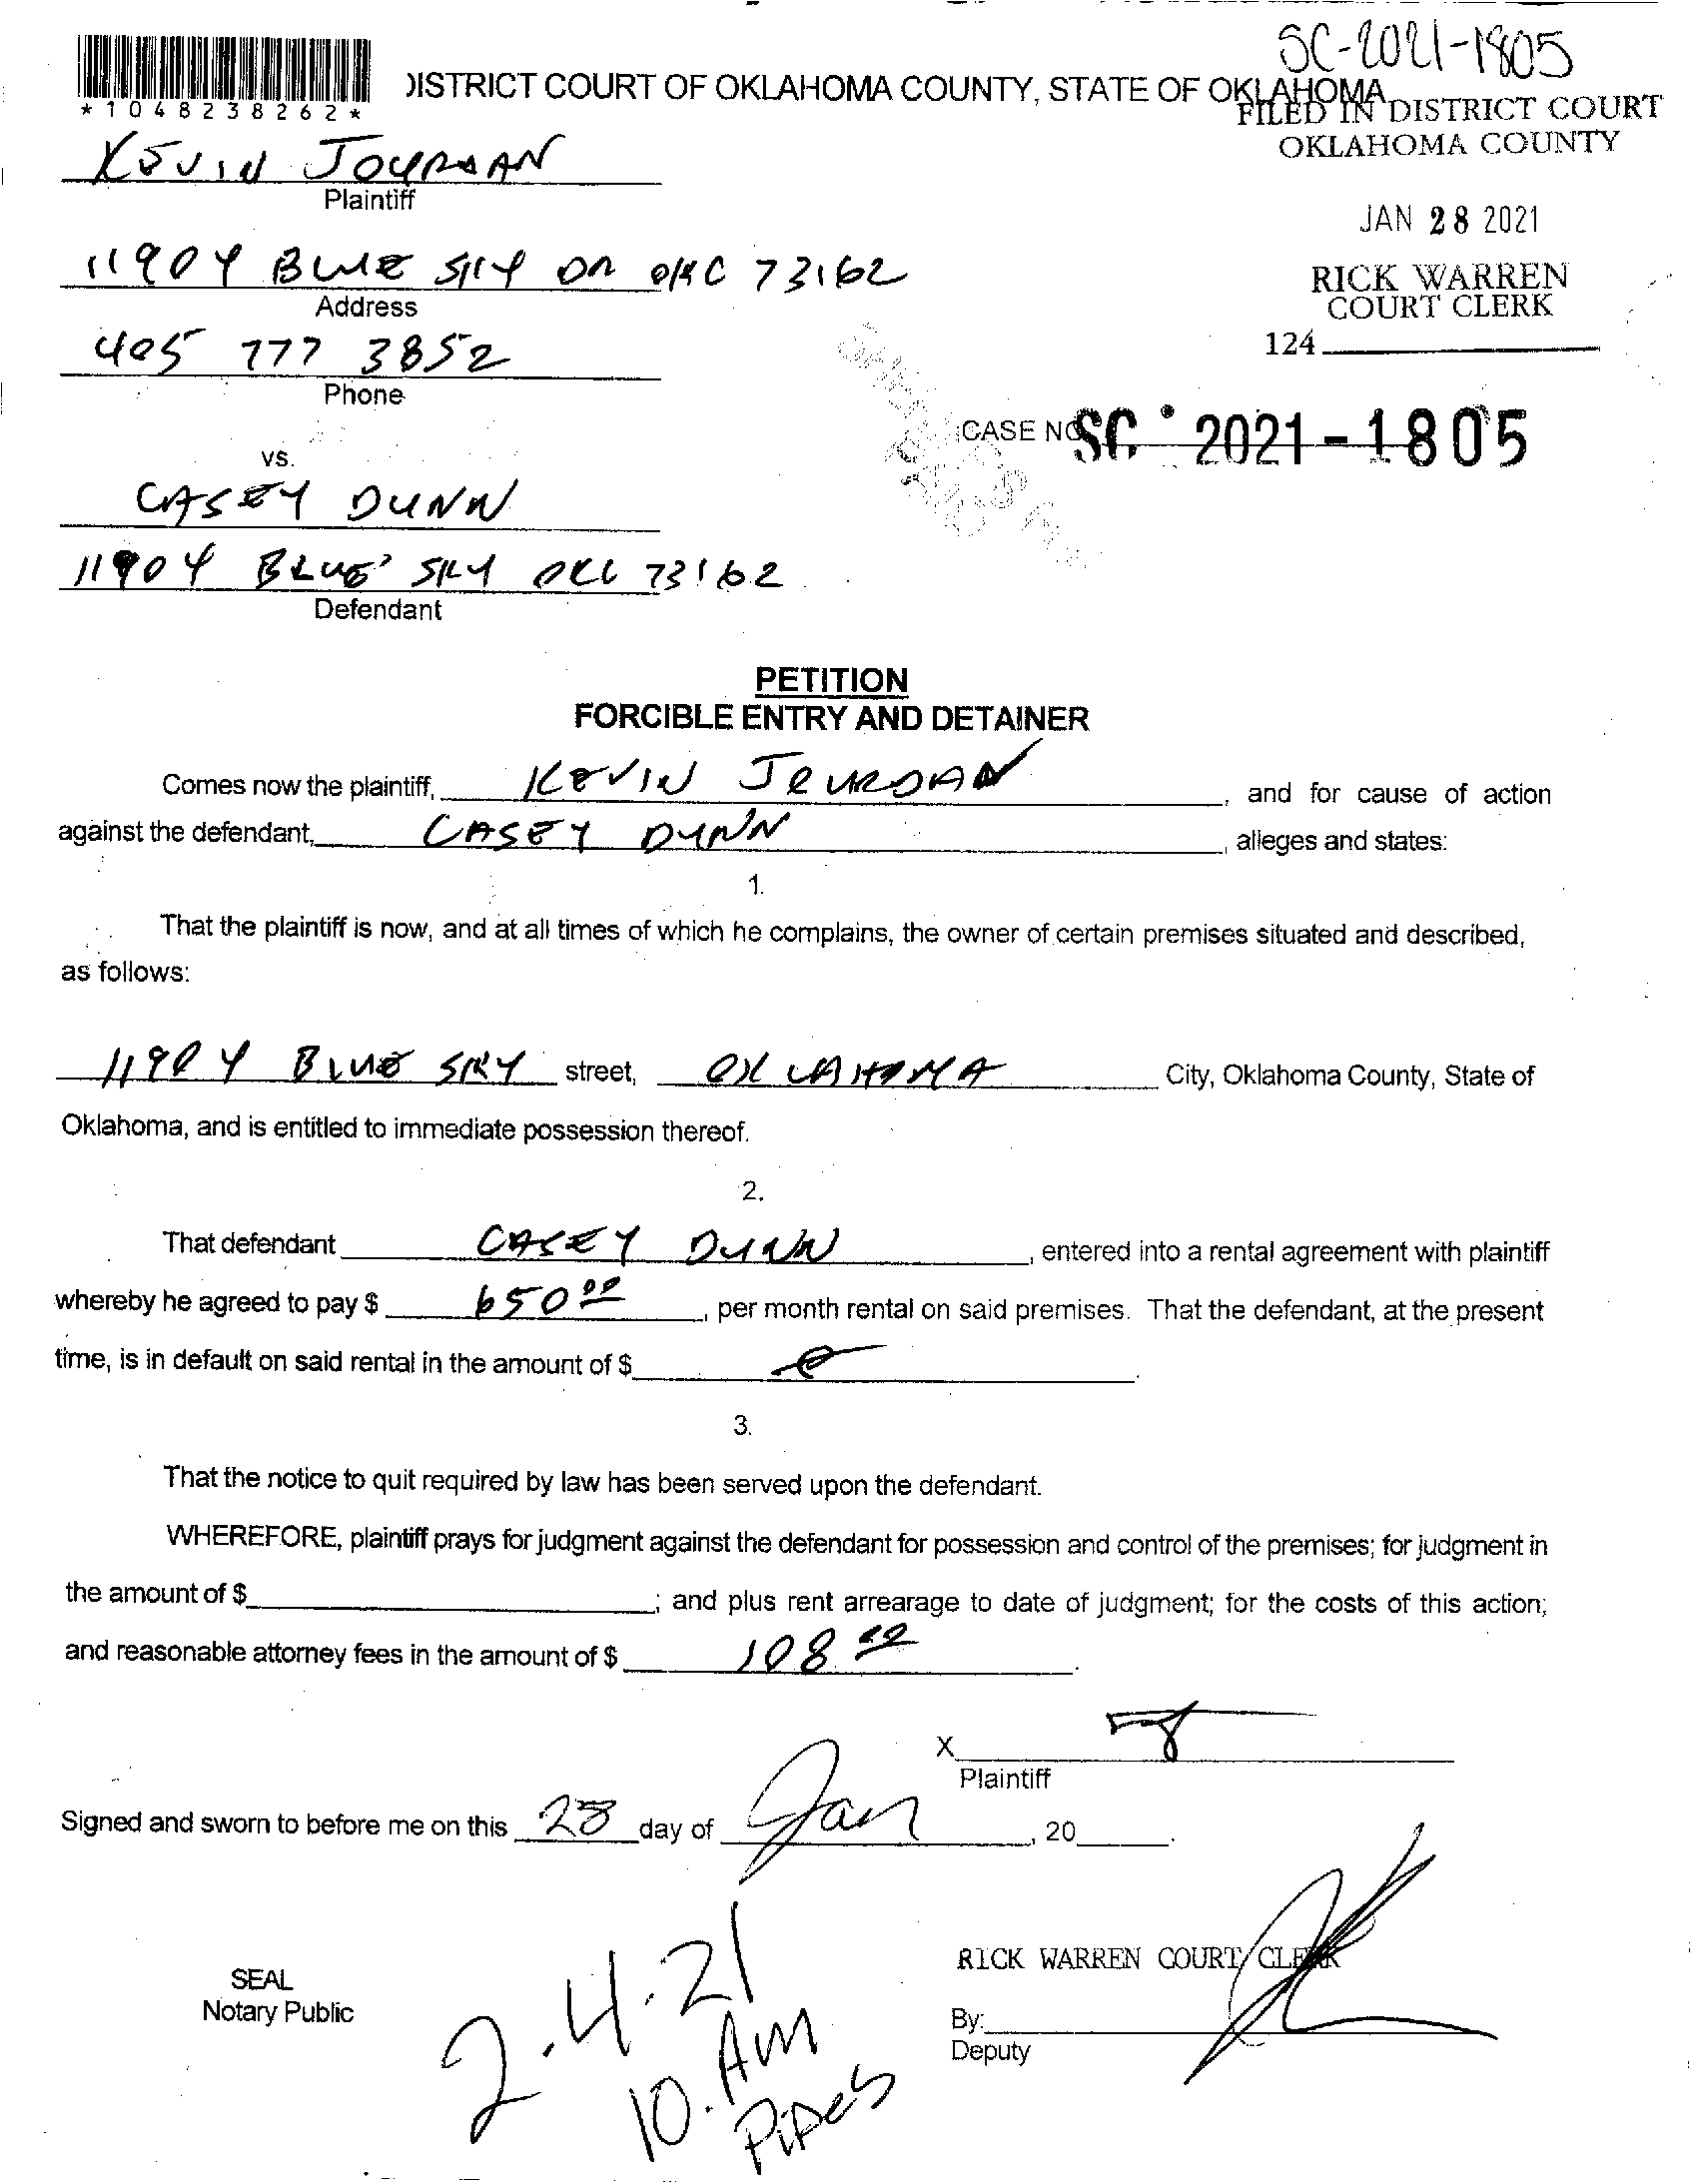 SC-2021-1805
DISTRICT COURT OF OKLAHOMA COUNTY, STATE OF OKLAHOMA
*1048238262*
FILED IN DISTRICT COURT
OKLAHOMA COUNTY
KEVIN JOURDAN
Plaintiff
JAN 28 2021
11904 BLUE SKY DR OKC 73162
Address
RICK WARREN
COURT CLERK
124
405 777 3852
Phone
CASE NO SC 2021-1805
vs.
CASEY DUNN
11904 BLUE SKY OKC 73162
Defendant
PETITION
FORCIBLE ENTRY AND DETAINER
Comes now the plaintiff, KEVIN JOURDAN, and for cause of action
against the defendant, CASEY DUNN, alleges and states:
1.
That the plaintiff is now, and at all times of which he complains, the owner of certain premises situated and described,
as follows:
11904 BLUE SKY street, OKLAHOMA City, Oklahoma County, State of
Oklahoma, and is entitled to immediate possession thereof.
2.
That defendant CASEY DUNN, entered into a rental agreement with plaintiff
whereby he agreed to pay $ 650 00, per month rental on said premises. That the defendant, at the present
time, is in default on said rental in the amount of $
3.
That the notice to quit required by law has been served upon the defendant.
WHEREFORE, plaintiff prays for judgment against the defendant for possession and control of the premises; for judgment in
the amount of $ ; and plus rent arrearage to date of judgment; for the costs of this action;
and reasonable attorney fees in the amount of $ 108 00.
X
Plaintiff
Signed and sworn to before me on this 28 day of Jan, 20 .
RICK WARREN COURT CLERK
SEAL
Notary Public
By:
Deputy
2.4.21
10. AM
Pipes